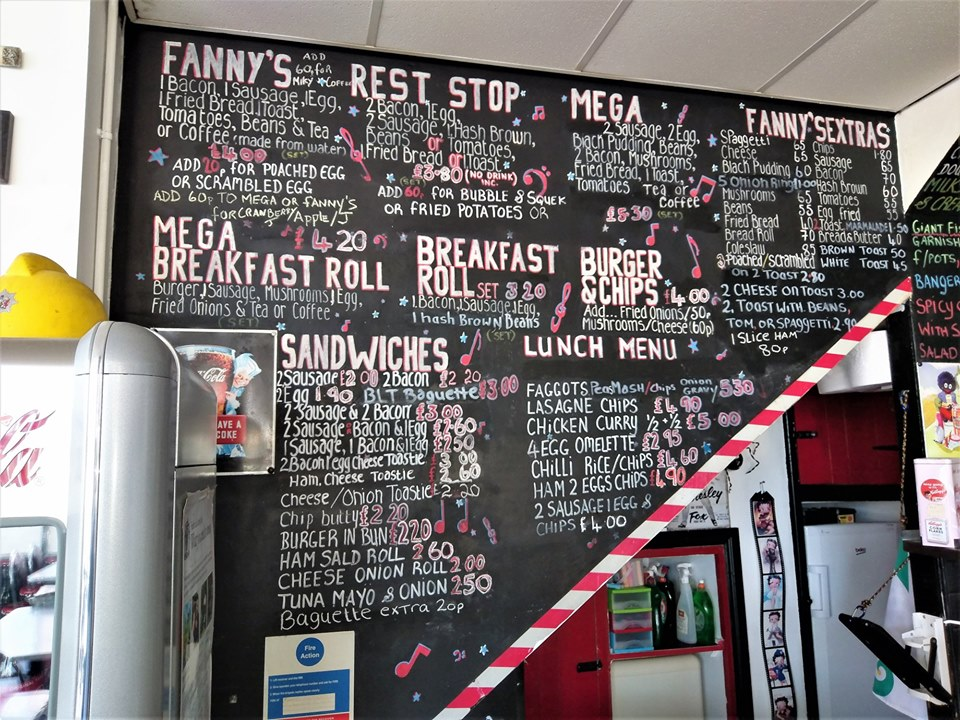 FANNY'S
ADD
60p for
Milky Coffee
1 Bacon, 1 Sausage, 1 Egg,
1 Fried Bread, Toast,
Tomatoes, Beans & Tea
or Coffee (made from water)
£4.00 (SET)
ADD 20p FOR POACHED EGG
OR SCRAMBLED EGG
ADD 60p TO MEGA OR FANNY'S
FOR CRANBERRY/Apple/J
REST STOP
2 Bacon, 1 Egg,
2 Sausage, 1 Hash Brown,
Beans or Tomatoes,
1 Fried Bread or 1 Toast
£3.80 (NO DRINK)
(SET) INC.
ADD 60p FOR BUBBLE & SQUEK
OR FRIED POTATOES OR
MEGA
2 Sausage, 2 Egg,
Black Pudding, Beans,
2 Bacon, Mushrooms,
Fried Bread, 1 Toast,
Tomatoes Tea or
Coffee
£5.30 (SET)
FANNY'S EXTRAS
Spaggetti 65
Cheese 65
Black Pudding 60
5 Onion Rings 1.00
Mushrooms
Beans 55
Fried Bread
Bread Roll 70
Coleslau 85
Chips 1.80
Sausage
Bacon
Hash Brown 60
Tomatoes
Egg Fried
Toast MARMALADE 1.50
Bread & Butter 40
BROWN TOAST 50
WHITE TOAST 45
2 Poached/scrambled
ON 2 TOAST 2.80
2 CHEESE ON TOAST 3.00
2, TOAST WITH BEANS,
TOM, OR SPAGGETTI 2.90
1 SLICE HAM
80p
MEGA £4.20
BREAKFAST ROLL
Burger, 1 Sausage, Mushrooms, 1 Egg,
Fried Onions & Tea or Coffee
(SET)
BREAKFAST
ROLL SET 3.20
1 Bacon, 1 Sausage, 1 Egg,
1 hash Brown Beans
(SET)
BURGER
& CHIPS £4.00
Add... Fried Onions/50p
Mushrooms/Cheese (60p)
SANDWICHES
2 Sausage £2.00 2 Bacon £2.20
2 Egg 1.90 BLT Baguette £3.00
2 Sausage & 2 Bacon £3.00
2 Sausage or Bacon & 1 Egg £2.60
1 Sausage, 1 Bacon & 1 Egg £2.50
2 Bacon 1 egg Cheese Toastie 3.00
Ham, Cheese Toastie 2.60
Cheese/Onion Toastie 2.20
Chip butty £2.20
BURGER IN BUN £2.20
HAM SALD ROLL 2.60
CHEESE ONION ROLL 2.00
TUNA MAYO & ONION 2.50
Baguette extra 20p
LUNCH MENU
FAGGOTS Peas Mash/Chips Onion GRAVY/5.30
LASAGNE CHIPS £4.90
CHICKEN CURRY ½ + ½ £5.00
4 EGG OMELETTE £2.95
CHILLI RICE/CHIPS £4.60
HAM 2 EGGS CHIPS £4.90
2 SAUSAGE 1 EGG &
CHIPS £4.00
GIANT
GARNISH
F/POTS,
BANGER
SPICY
WITH S
SALAD
Coca-Cola
HAVE A
COKE
Fire
Action
Fox